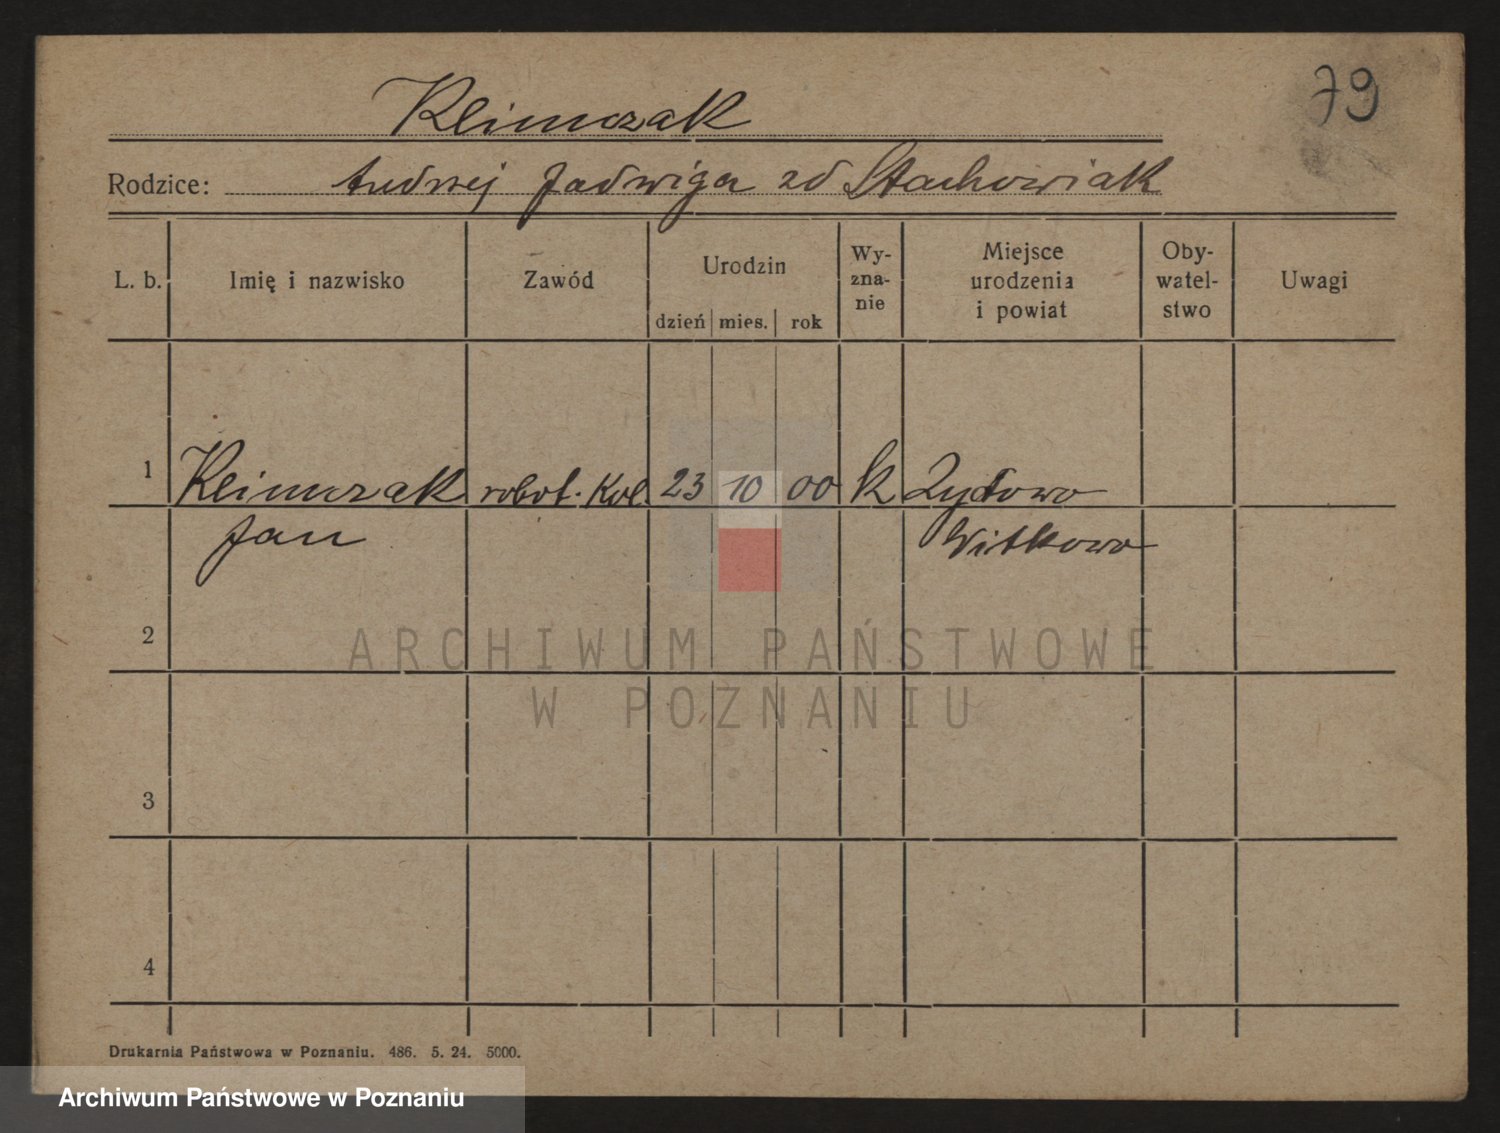 79
Klimczak
Rodzice: Andrzej Jadwiga zd Stachowiak
L. b. Imię i nazwisko Zawód Urodzin dzień mies. rok Wy-zna-nie Miejsce urodzenia i powiat Oby-watel-stwo Uwagi
1 Klimczak robot. Kol. 23 10 00 k Żydowo
Jan Witkowo
2
3
4
ARCHIWUM PAŃSTWOWE
W POZNANIU
Drukarnia Państwowa w Poznaniu. 486. 5. 24. 5000.
Archiwum Państwowe w Poznaniu